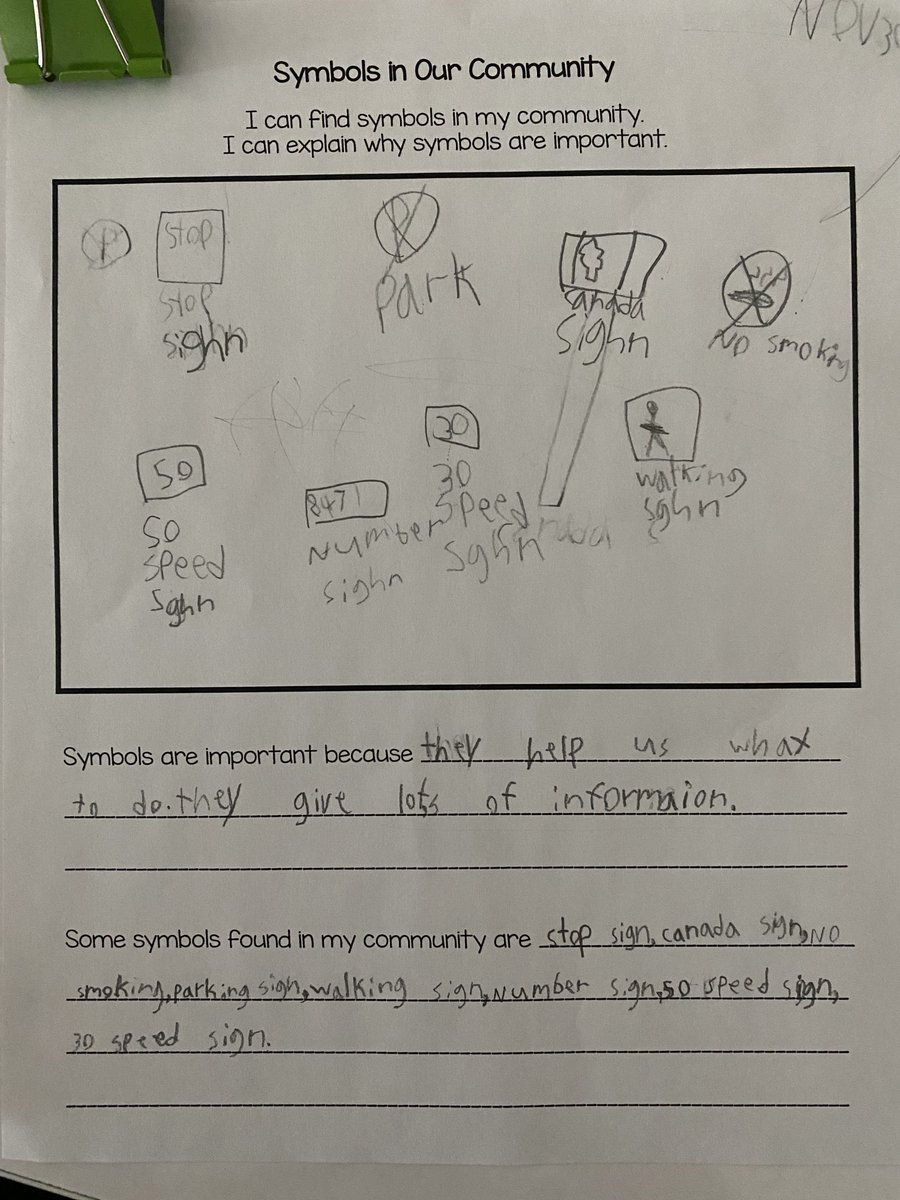 NOV 30
Symbols in Our Community
I can find symbols in my community.
I can explain why symbols are important.
P
stop
stop
sighn
P
park
canada
sighn
NO smoking
50
50
speed
sghn
8471
number
sighn
30
30
speed
sghn
walking
sghn
Symbols are important because they help us what
to do. they give lots of informaion.
Some symbols found in my community are stop sign, canada sign, NO
smoking, parking sign, walking sign, number sign, 50 speed sign,
30 speed sign.